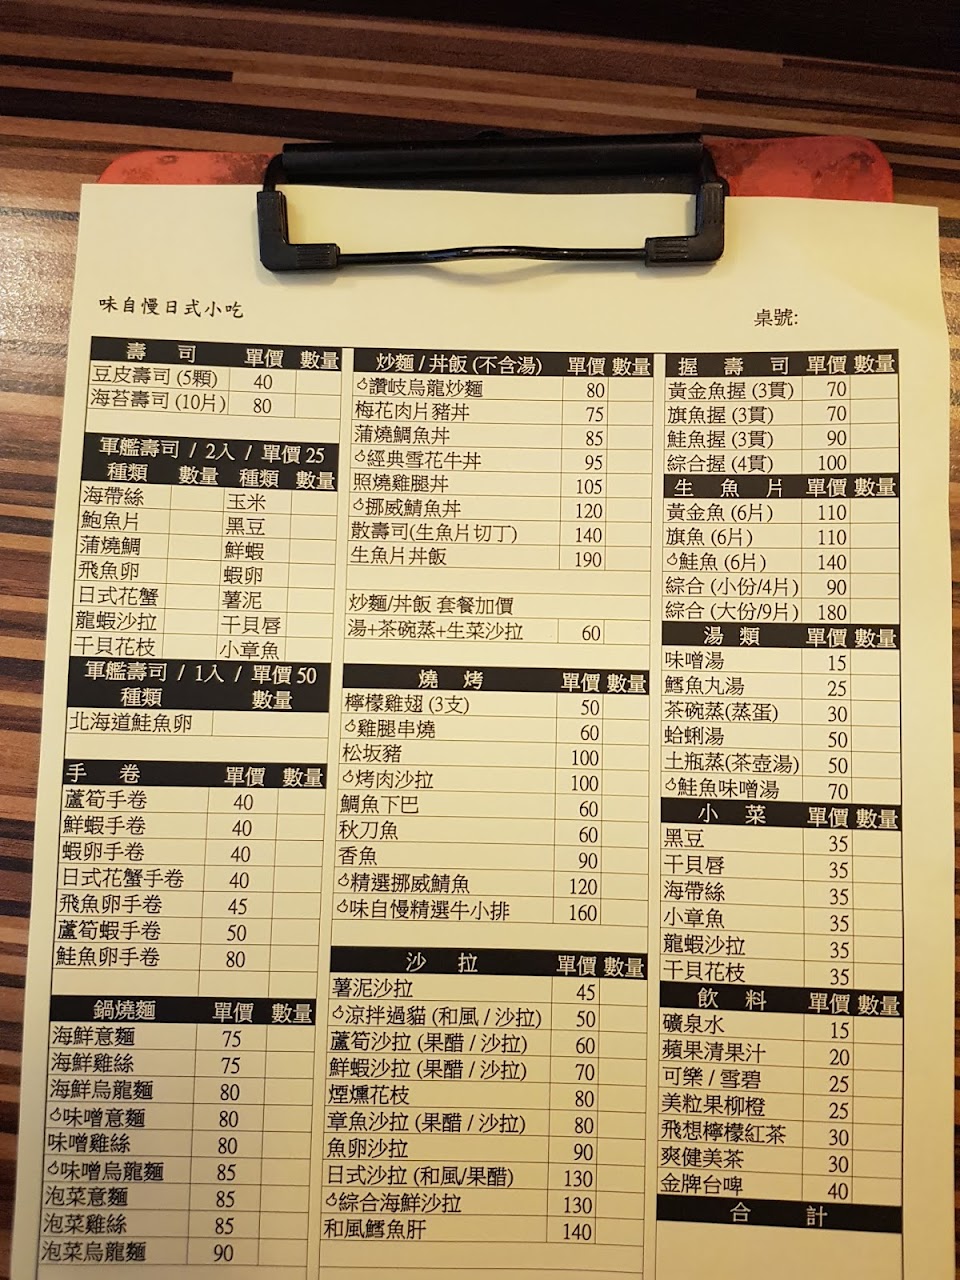 味自慢日式小吃
桌號:
壽 司 單價 數量
豆皮壽司 (5顆) 40
海苔壽司 (10片) 80
軍艦壽司 / 2入 / 單價 25
種類 數量 種類 數量
海帶絲 玉米
鮑魚片 黑豆
蒲燒鯛 鮮蝦
飛魚卵 蝦卵
日式花蟹 薯泥
龍蝦沙拉 干貝唇
干貝花枝 小章魚
軍艦壽司 / 1入 / 單價 50
種類 數量
北海道鮭魚卵
手 卷 單價 數量
蘆筍手卷 40
鮮蝦手卷 40
蝦卵手卷 40
日式花蟹手卷 40
飛魚卵手卷 45
蘆筍蝦手卷 50
鮭魚卵手卷 80
鍋燒麵 單價 數量
海鮮意麵 75
海鮮雞絲 75
海鮮烏龍麵 80
味噌意麵 80
味噌雞絲 80
味噌烏龍麵 85
泡菜意麵 85
泡菜雞絲 85
泡菜烏龍麵 90
炒麵 / 丼飯 (不含湯) 單價 數量
讚岐烏龍炒麵 80
梅花肉片豬丼 75
蒲燒鯛魚丼 85
經典雪花牛丼 95
照燒雞腿丼 105
挪威鯖魚丼 120
散壽司(生魚片切丁) 140
生魚片丼飯 190
炒麵/丼飯 套餐加價
湯+茶碗蒸+生菜沙拉 60
燒 烤 單價 數量
檸檬雞翅 (3支) 50
雞腿串燒 60
松坂豬 100
烤肉沙拉 100
鯛魚下巴 60
秋刀魚 60
香魚 90
精選挪威鯖魚 120
味自慢精選牛小排 160
沙 拉 單價 數量
薯泥沙拉 45
涼拌過貓 (和風 / 沙拉) 50
蘆筍沙拉 (果醋 / 沙拉) 60
鮮蝦沙拉 (果醋 / 沙拉) 70
煙燻花枝 80
章魚沙拉 (果醋 / 沙拉) 80
魚卵沙拉 90
日式沙拉 (和風/果醋) 130
綜合海鮮沙拉 130
和風鱈魚肝 140
握 壽 司 單價 數量
黃金魚握 (3貫) 70
旗魚握 (3貫) 70
鮭魚握 (3貫) 90
綜合握 (4貫) 100
生 魚 片 單價 數量
黃金魚 (6片) 110
旗魚 (6片) 110
鮭魚 (6片) 140
綜合 (小份/4片) 90
綜合 (大份/9片) 180
湯 類 單價 數量
味噌湯 15
鱈魚丸湯 25
茶碗蒸(蒸蛋) 30
蛤蜊湯 50
土瓶蒸(茶壺湯) 50
鮭魚味噌湯 70
小 菜 單價 數量
黑豆 35
干貝唇 35
海帶絲 35
小章魚 35
龍蝦沙拉 35
干貝花枝 35
飲 料 單價 數量
礦泉水 15
蘋果清果汁 20
可樂 / 雪碧 25
美粒果柳橙 25
飛想檸檬紅茶 30
爽健美茶 30
金牌台啤 40
合 計